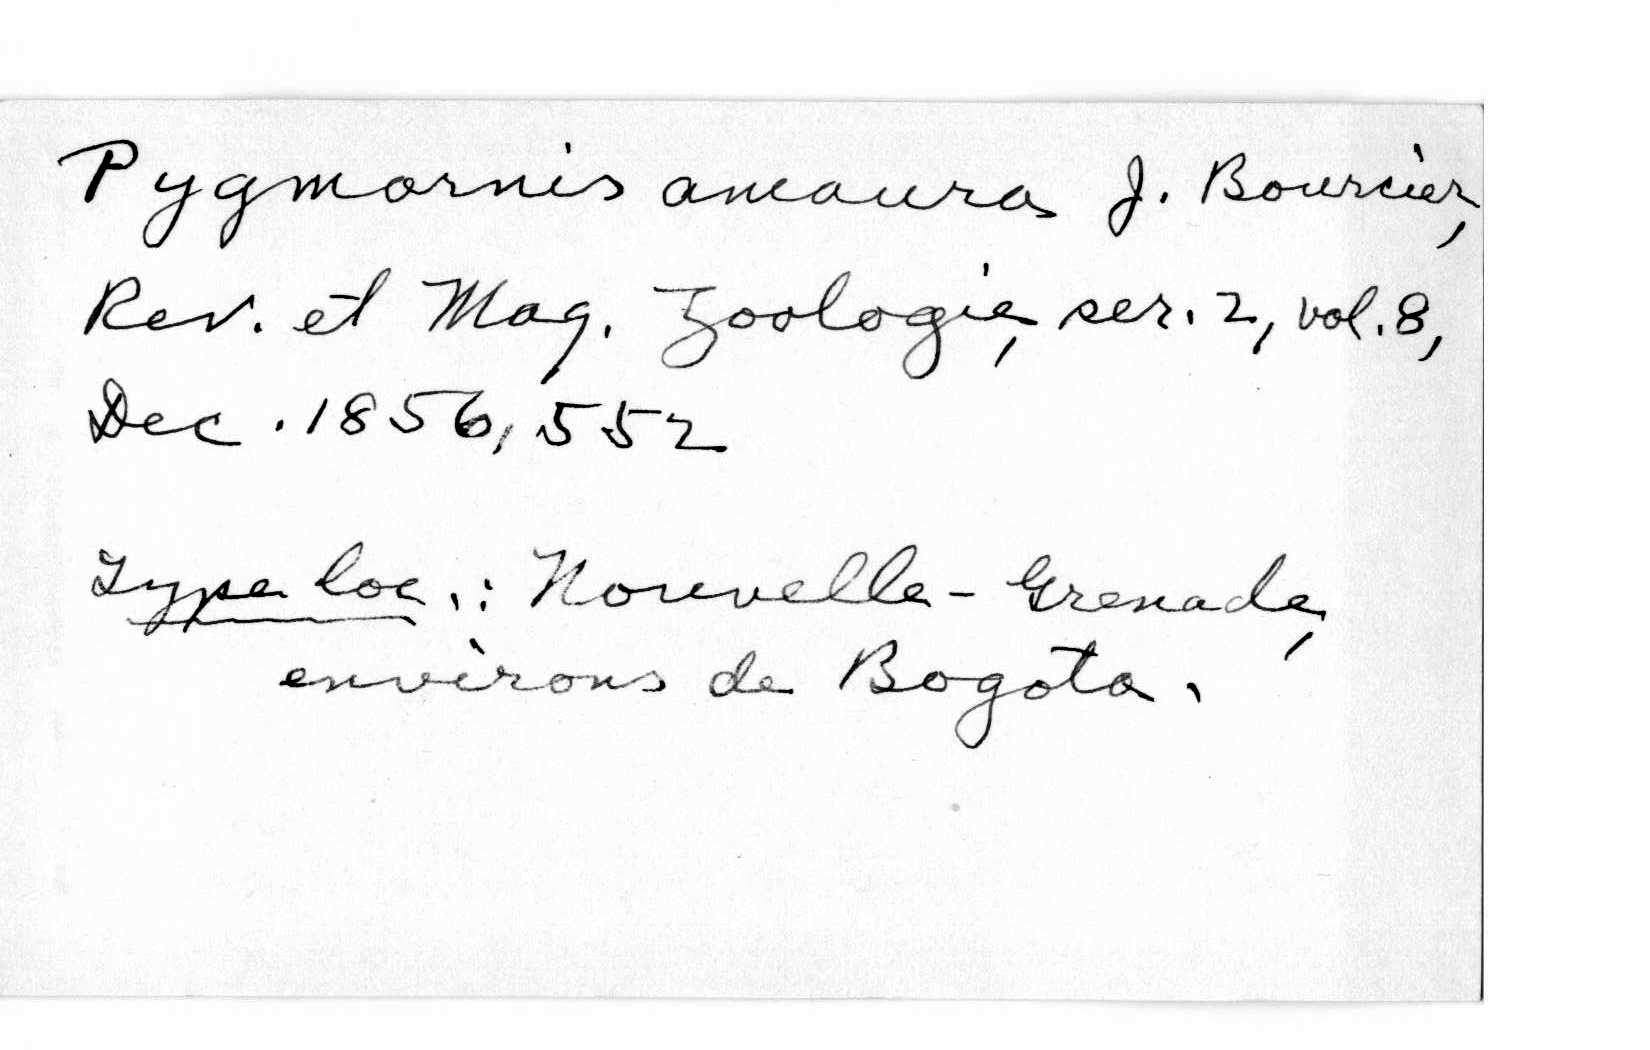 Pygmornis amaura J. Bourcier,
Rev. et Mag. Zoologie, ser. 2, vol. 8,
Dec. 1856, 552
Type loc.: Nouvelle-Grenade,
environs de Bogota.